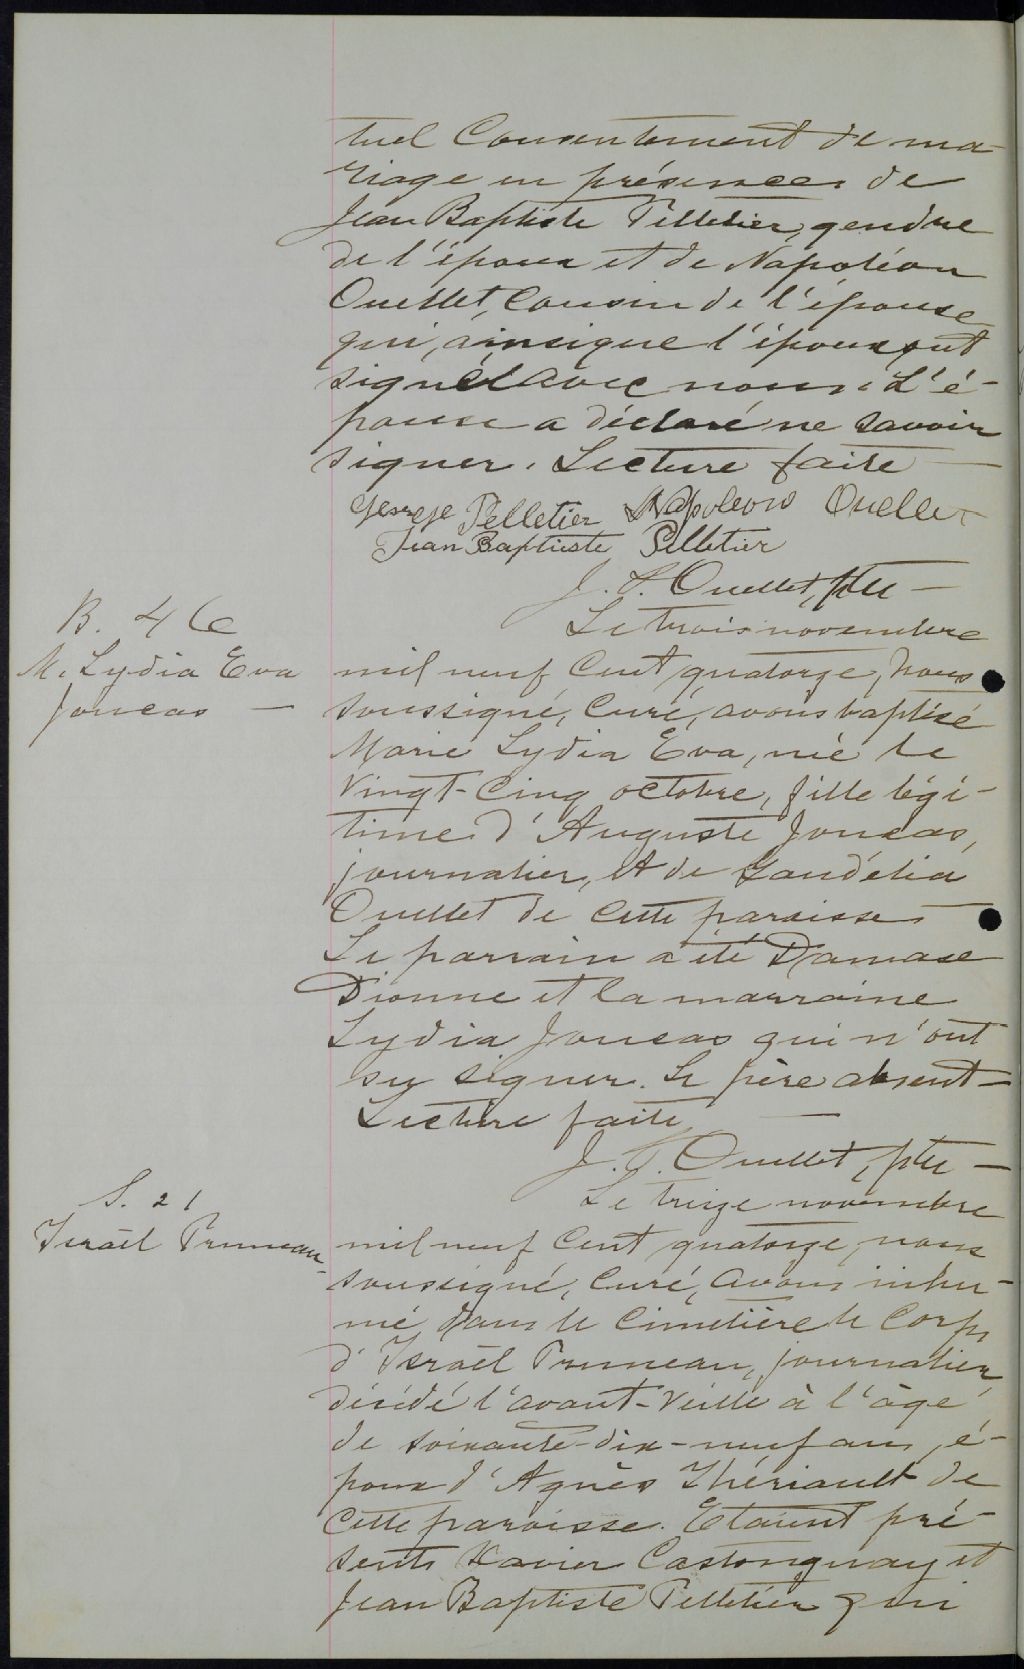 tuel Consentement de ma-
riage en présences de
Jean Baptiste Pelletier, gendre
de l'époux et de Napoléon
Ouellet, Cousin de l'épouse
qui, ainsique l'époux, ont
signé avec nous. L'é-
pouse a déclaré ne savoir
signer. Lecture faite —
George Pelletier Napoleon Ouellet
Jean Baptiste Pelletier
J. Ouellet, ptre —
Le trois novembre
B. 46
M. Lydia Eva
Joncas —
mil neuf Cent quatorze, Nous
soussigné, Curé, avons baptisé
Marie Lydia Eva, née le
Vingt-Cinq octobre, fille légi-
time d'Auguste Joncas,
journalier, et de
Ouellet de Cette paroisse —
Le parrain a été Damase
Dionne et la marraine
Lydia Joncas qui n'ont
su signer. Le père absent —
Lecture faite —
J. Ouellet, ptre —
Le treize novembre
S. 21
Israël Pruneau
mil neuf Cent quatorze, nous
soussigné, Curé, avons inhu-
mé dans le Cimetière le Corps
d'Israël Pruneau, journalier,
décédé l'avant-Veille à l'âge
de soixante-dix-neuf ans, é-
poux d'Agnès Thériault de
Cette paroisse. Etaient pré-
sents Xavier Castonguay et
Jean Baptiste Pelletier qui